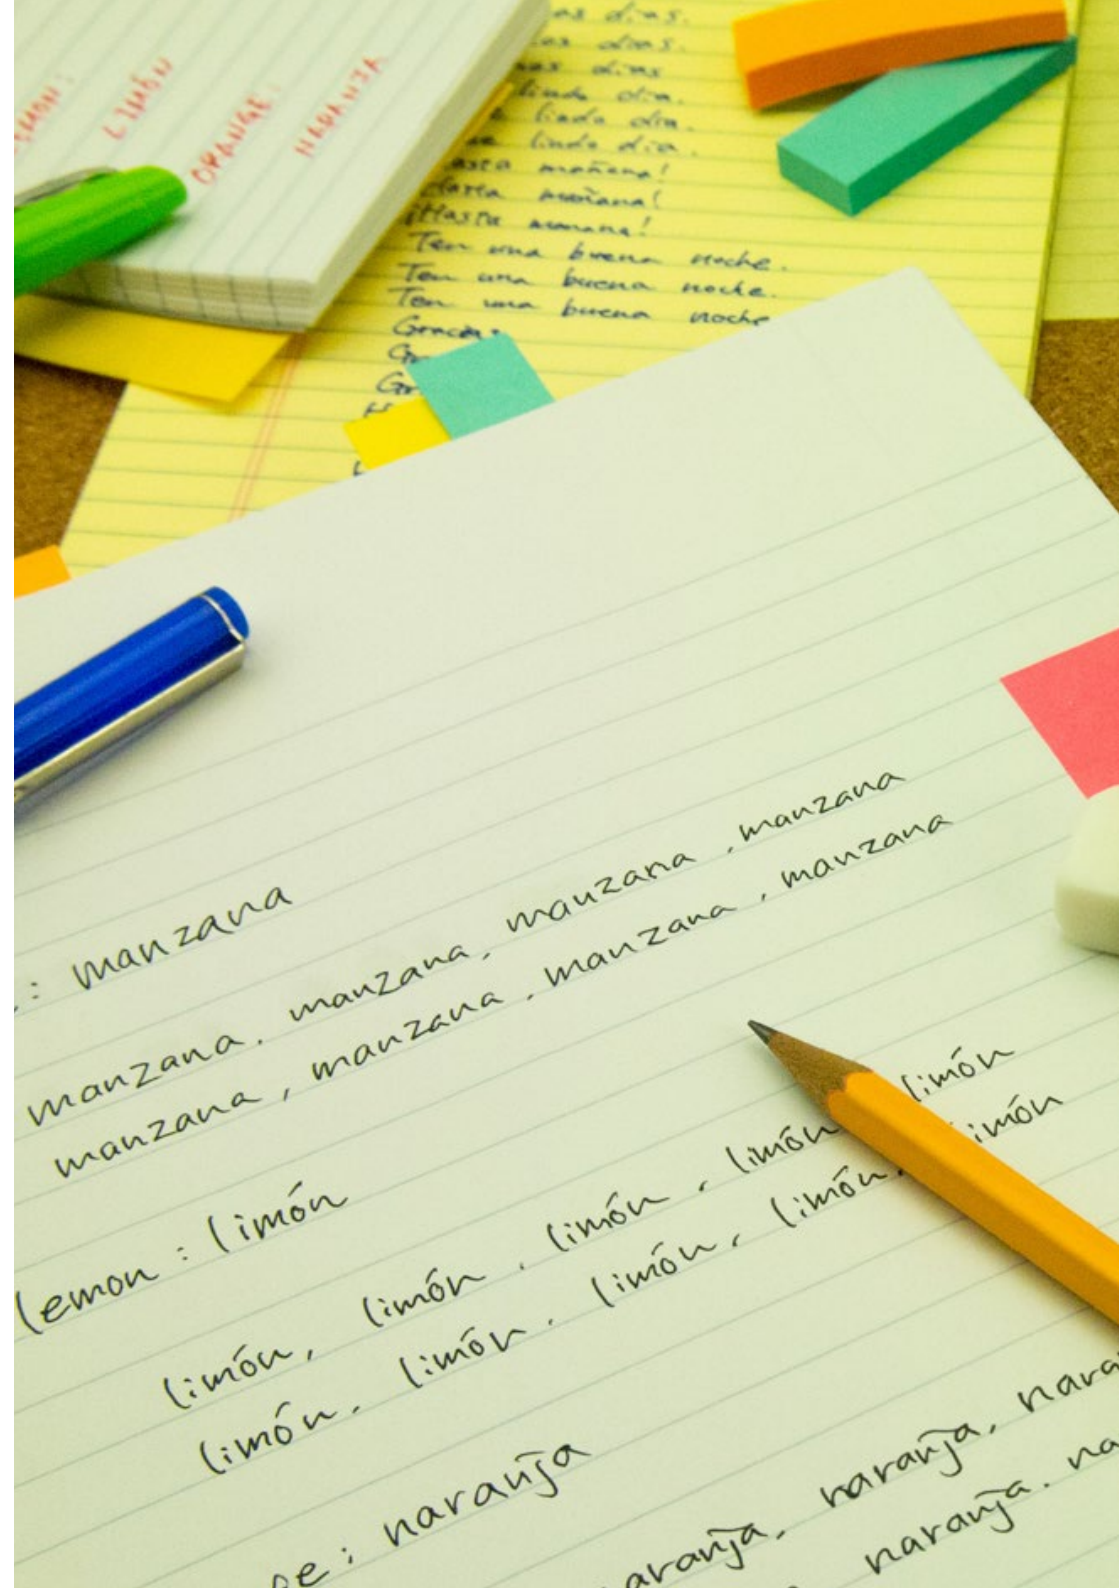 LIMÓN
ORANGE:
NARANJA
dias.
dias.
dias
lindo dia.
lindo dia.
lindo dia.
mañana!
Hasta mañana!
¡Hasta manana!
Ten una buena noche.
Ten una buena noche.
Ten una buena noche
Gracias
: manzana
manzana, manzana, manzana, manzana
manzana, manzana, manzana, manzana
lemon : limón
limón, limón, limón, limón, limón
limón, limón, limón, limón, limón
: naranja
naranja, nara
naranja, na